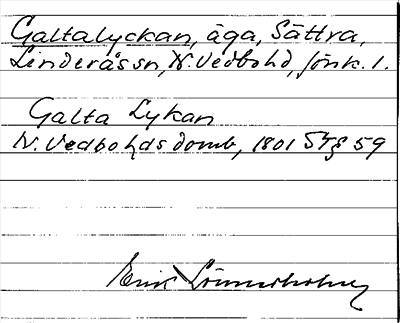 Galtalyckan, äga, Sättra,
Linderås sn, N. Vedbo hd, Jönk. l.
Galta Lykan
N. Vedbo hds domb, 1801 St § 59
Erik Lönnerholm